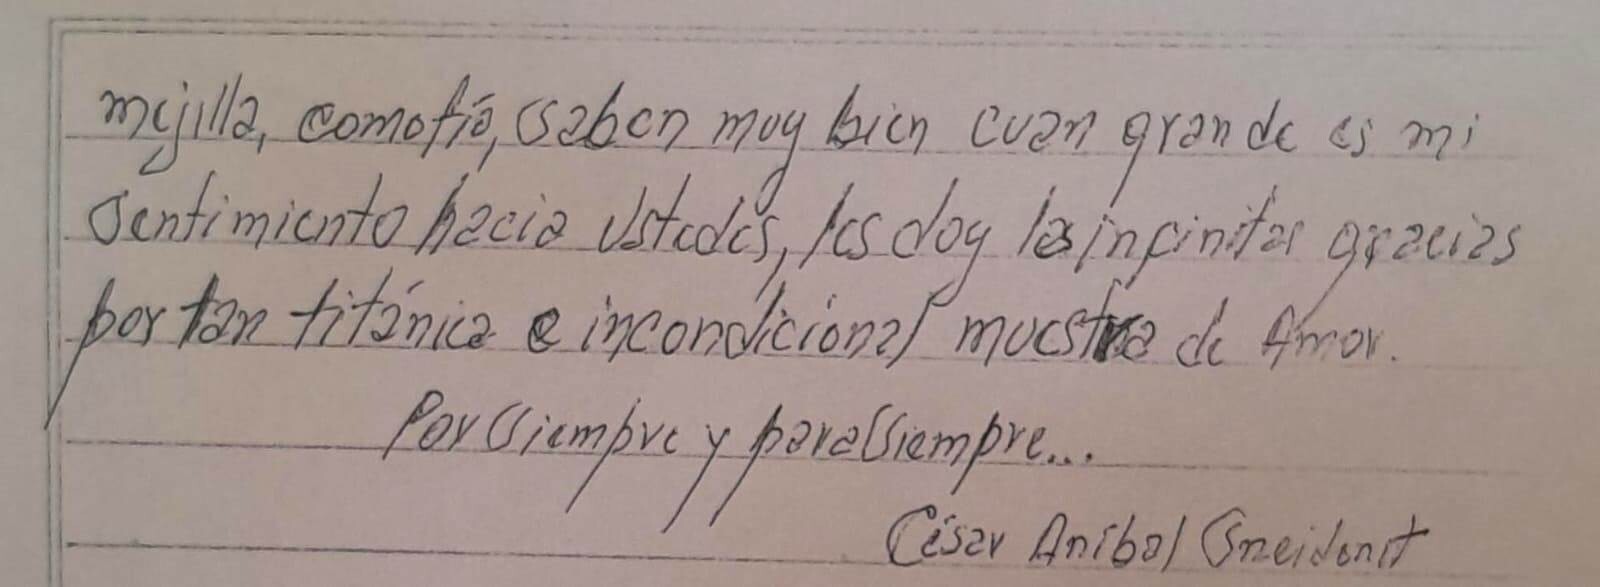 mejilla, como tía, saben muy bien cuan grande es mi
sentimiento hacia Ustedes, les doy las infinitas gracias
por tan titánica e incondicional muestra de Amor.
Por siempre y para siempre...
César Aníbal